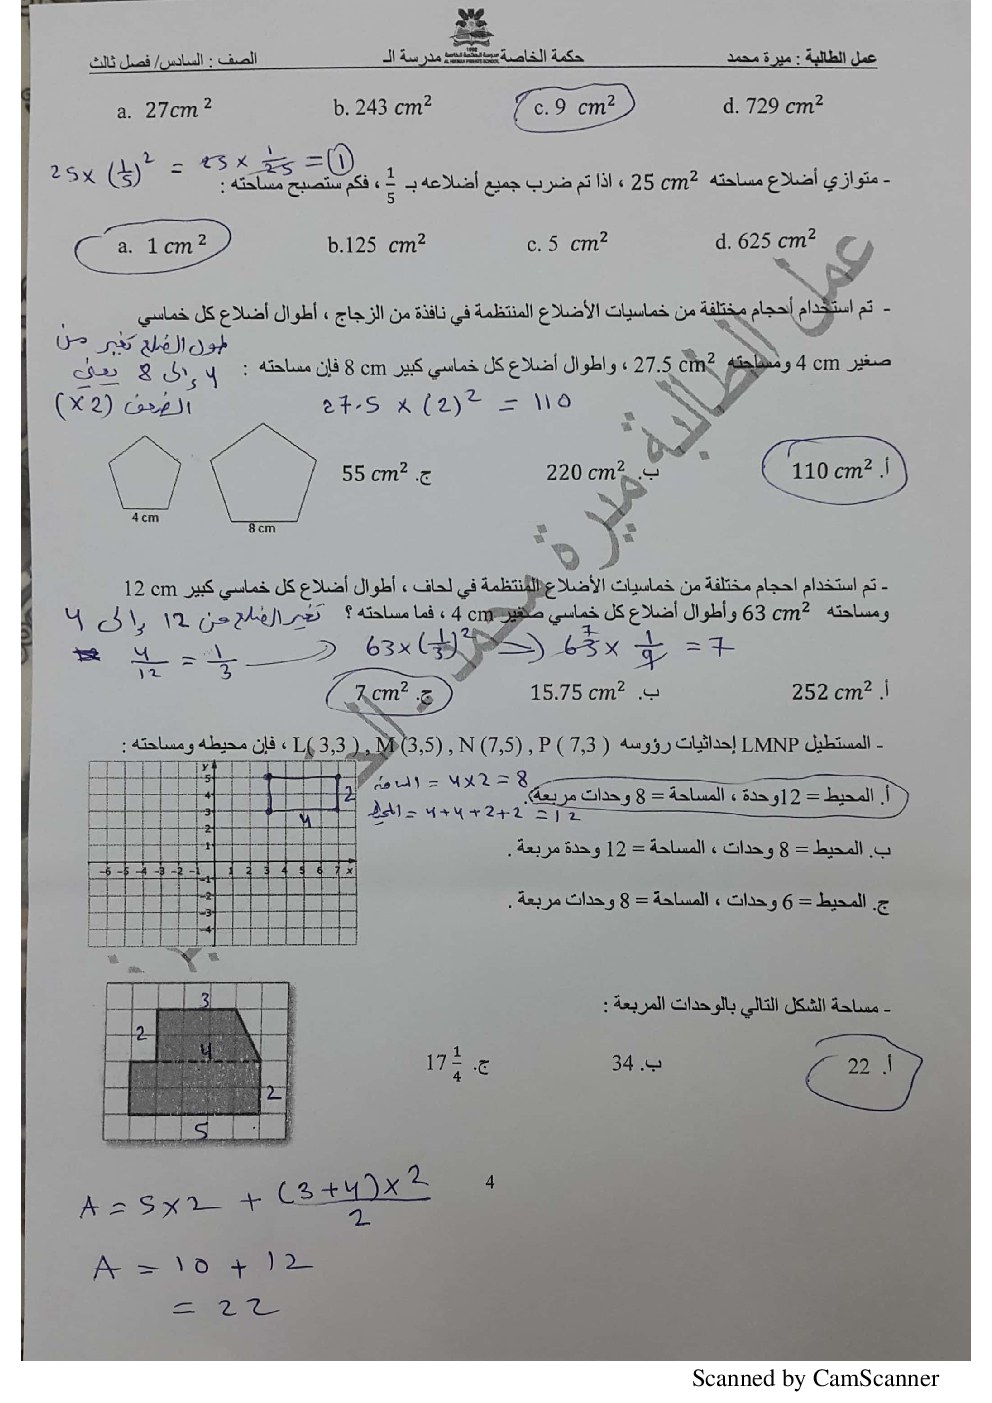 عمل الطالبة : ميرة محمد
مدرسة الـ حكمة الخاصة
الصف : السادس/ فصل ثالث
a. 27cm ²
b. 243 cm²
c. 9 cm²
d. 729 cm²
25 × (1/5)² = 25 × 1/25 = 1
- متوازي أضلاع مساحته 25 cm² ، اذا تم ضرب جميع أضلاعه بـ 1/5 ، فكم ستصبح مساحته :
a. 1 cm ²
b.125 cm²
c. 5 cm²
d. 625 cm²
- تم استخدام أحجام مختلفة من خماسيات الأضلاع المنتظمة في نافذة من الزجاج ، أطوال أضلاع كل خماسي
صغير 4 cm ومساحته 27.5 cm² ، واطوال أضلاع كل خماسي كبير 8 cm فإن مساحته :
طول الضلع تغير من
4 إلى 8 يعني
الضعف (×2)
27.5 × (2)² = 110
أ. 110 cm²
ب. 220 cm²
ج. 55 cm²
4 cm
8 cm
- تم استخدام احجام مختلفة من خماسيات الأضلاع المنتظمة في لحاف ، أطوال أضلاع كل خماسي كبير 12 cm
ومساحته 63 cm² وأطوال أضلاع كل خماسي صغير 4 cm ، فما مساحته ؟
تغير الضلع من 12 إلى 4
4/12 = 1/3
63 × (1/3)²
63 × 1/9 = 7
7
أ. 252 cm²
ب. 15.75 cm²
ج. 7 cm²
- المستطيل LMNP إحداثيات رؤوسه L( 3,3 ) , M (3,5) , N (7,5) , P ( 7,3 ) ، فإن محيطه ومساحته :
أ. المحيط = 12وحدة ، المساحة = 8 وحدات مربعة.
المساحة = 4×2 = 8
المحيط = 4+4+2+2 = 12
ب. المحيط = 8 وحدات ، المساحة = 12 وحدة مربعة .
ج. المحيط = 6 وحدات ، المساحة = 8 وحدات مربعة .
y
5
4
3
2
1
-6 -5 -4 -3 -2 -1 1 2 3 4 5 6 7 x
-1
-2
-3
-4
2
4
- مساحة الشكل التالي بالوحدات المربعة :
أ. 22
ب. 34
ج. 17 1/4
3
2
4
2
5
4
A = 5×2 + (3+4)×2/2
A = 10 + 12
= 22
عمل الطالبة ميرة محمد
Scanned by CamScanner